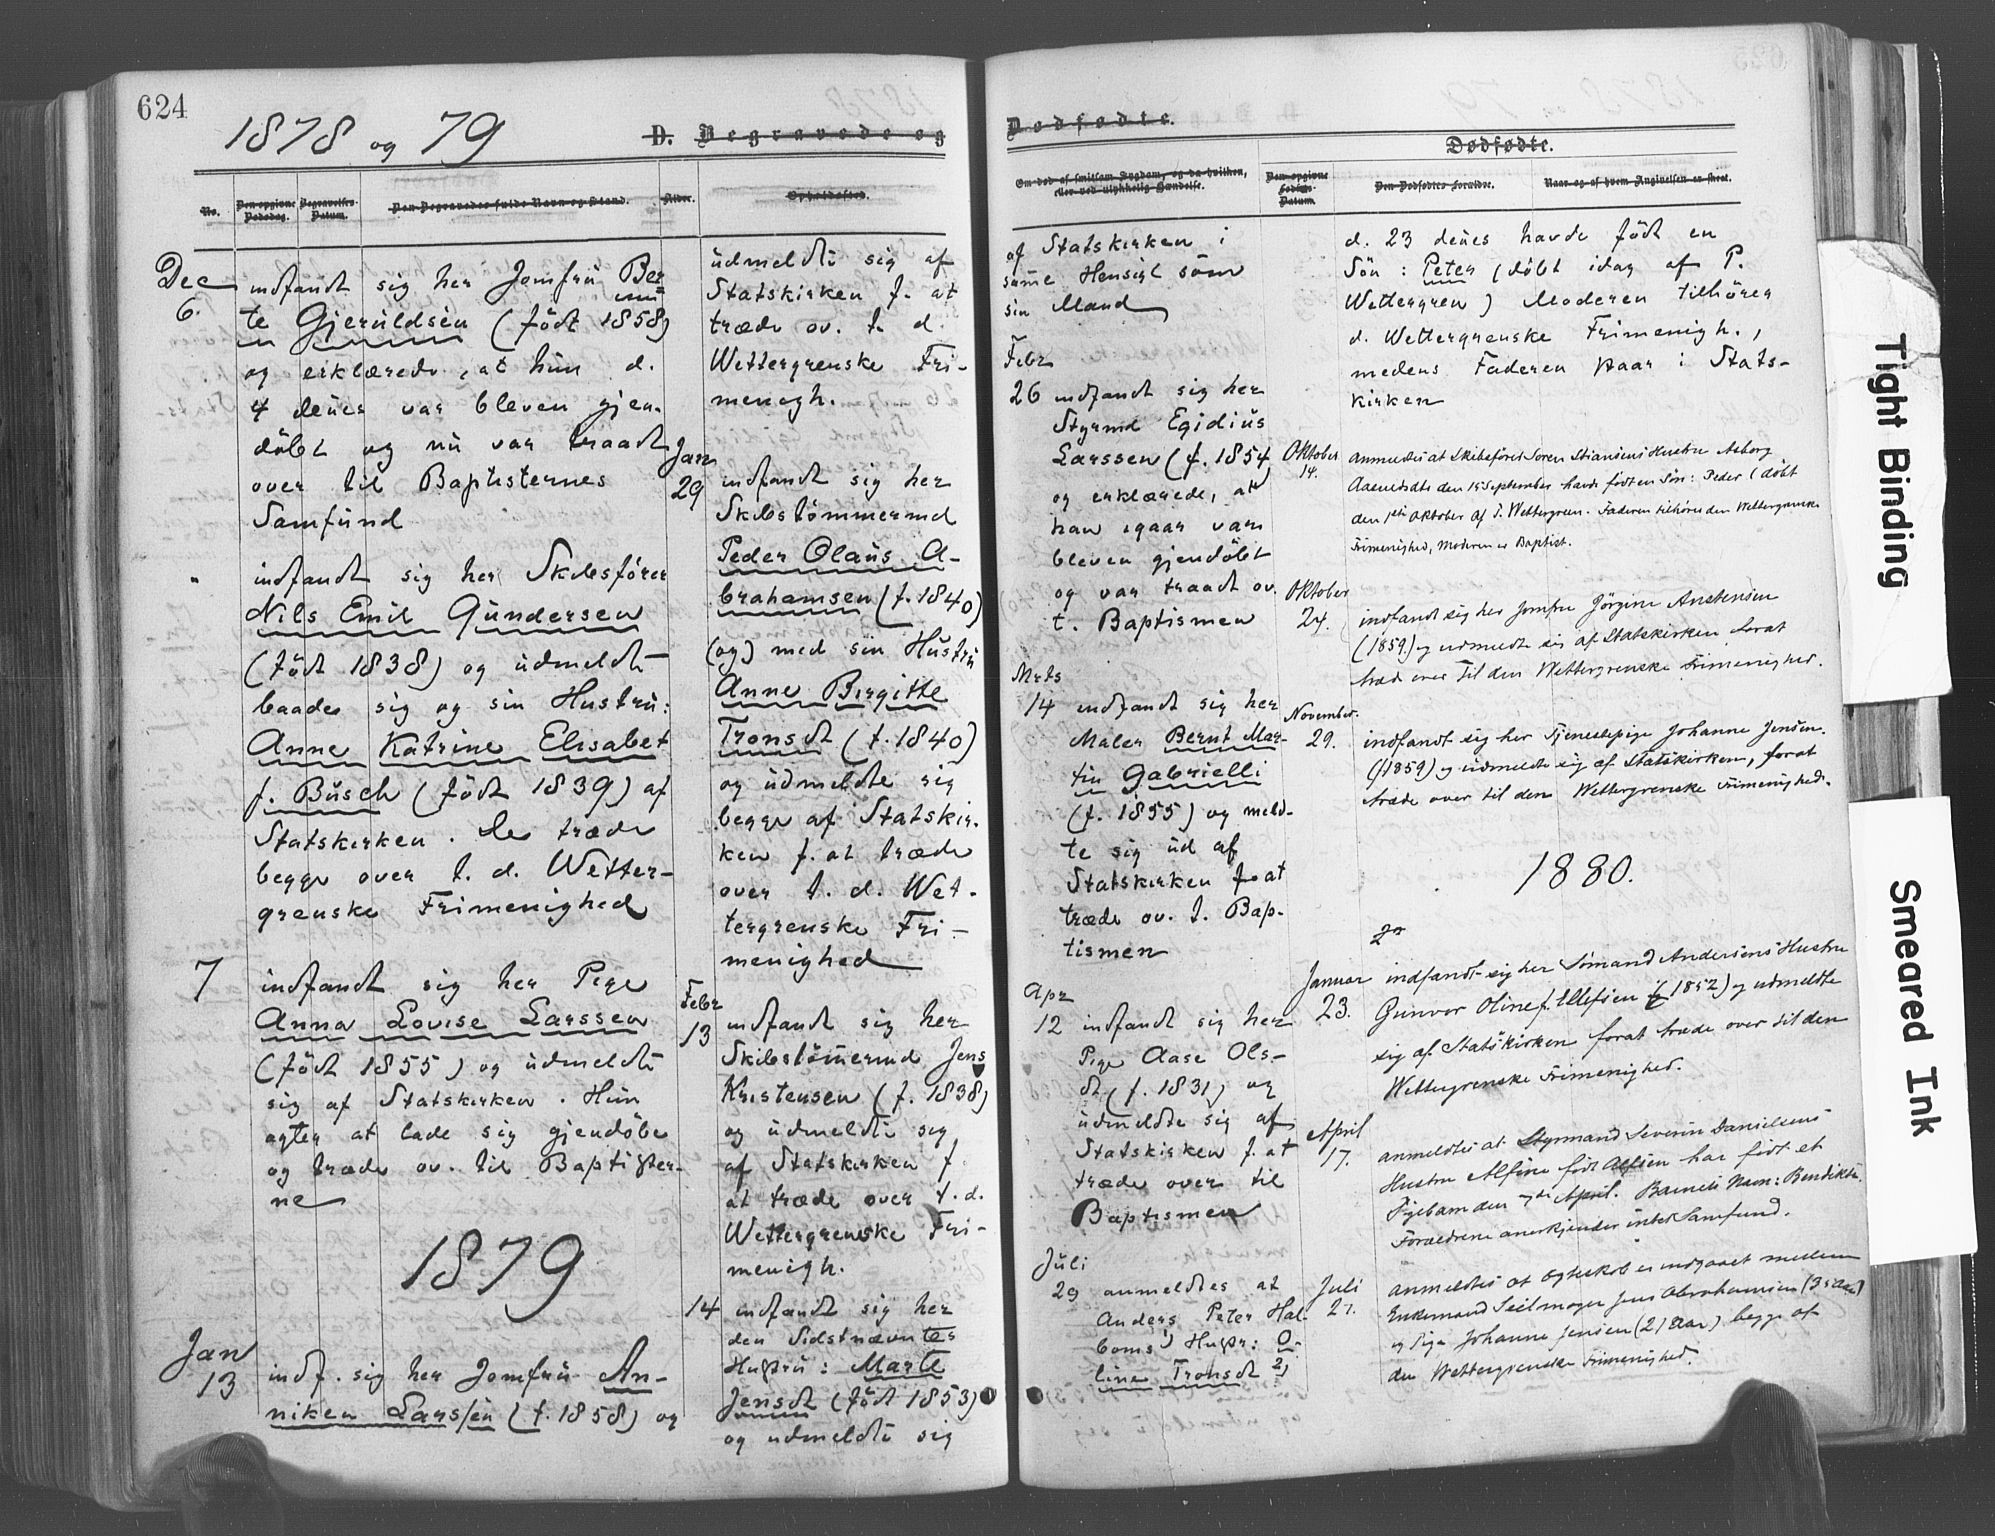 624
1878 og 79
D. Begravede og
Dødfødte.
Dødfødte.
No.
Den opgivne Dødsdag.
Begravelses-Datum.
Den Begravedes fulde Navn og Stand.
Alder.
Opholdssted.
Om død af smitsom Sygdom, og da hvilken,
eller ved ulykkelig Hændelse.
Den opgivne Fødsels-Datum.
Den Dødfødtes Forældre.
Naar og af hvem Angivelsen er skeet.
Dec
6.
indfandt sig her Jomfru Ber
te Gjeruldsen (født 1858)
og erklærede, at hun d.
4 denes var bleven gjen-
döbt og nu var traadt
over til Baptisternes
Samfund
"
indfandt sig her Skibsfører
Nils Emil Gundersen
(født 1838) og udmeldte
baade sig og sin Hustru:
Anne Katrine Elisabet
f. Busch (født 1839) af
Statskirken. De træde
begge over t. d. Wetter-
grenske Frimenighed
7
indfandt sig her Pige
Anna Lovise Larssen
(født 1855) og udmeldte
sig af Statskirken. Hun
agter at lade sig gjendøbe
og træde ov. til Baptister-
ne
1879
Jan
13
indf. sig her Jomfru An-
niken Larssen (f. 1858) og
udmeldte sig af
Statskirken f. at
træde ov. t. d.
Wettergrenske Fri-
menigh.
Jan
29
indfandt sig her
Skibstömmermd
Peder Olaus A-
brahamsen (f. 1840)
(og) med sin Hustru
Anne Birgitte
Tronsdt (f. 1840)
og udmeldte sig
begge af Statskir-
ken f. at træde
over t. d. Wet-
tergrenske Fri-
menighed
Febr
13
indfandt sig her
Skibstömermd Jens
Kristensen (f. 1838)
og udmeldte sig
af Statskirken f.
at træde over t. d.
Wettergrenske Fri-
menigh.
14
indfandt sig her
den Sidstnævntes
Hustru: Marte
Jensdt (født 1853)
og udmeldte sig
af Statskirken i
samme Hensigt som
sin Mand
Febr
26
indfandt sig her
Styrmd Egidius
Larssen (f. 1854)
og erklærede, at
han igaar var
bleven gjendöbt
og var traadt ov.
t. Baptismen
Mrts
14
indfandt sig her
Maler Bernt Mar-
tin Gabrielli
(f. 1855) og meld-
te sig ud af
Statskirken f. at
træde ov. t. Bap-
tismen
Apr
12
indfandt sig her
Pige Aase Ols-
dt (f. 1831) og
udmeldte sig af
Statskirken f. at
træde over til
Baptismen
Juli
29
anmeldtes at
Anders Peter Hal-
boms Hustr: O-
line Tronsdt
d. 23 denes havde födt en
Sön: Peter (döbt idag af P.
Wettergren) Moderen tilhörer
d. Wettergrenske Frimenigh.,
medens Faderen staar i Stats-
kirken
Oktober
14.
anmeldtes at Skibsfører Soren Stiansens Hustru Aaborg
den 15 September havde født en Sön: Peder (døbt
den 1ste Oktober af P. Wettergreen. Faderen tilhører den Wettergrenske
Frimenighed, Moderen er Baptist.
Oktober
24.
indfandt sig her Jomfru Jörgine Anstensen
(1859) og udmeldte sig af Statskirken forat
træde over til den Wettergrenske Frimenighed.
November
29.
indfandt sig her Tjenestepige Johanne Jensen
(f 1859) og udmeldte sig af Statskirken, forat
træde over til den Wettergrenske Frimenighed.
1880.
Januar
23.
indfandt sig her Sömand Andersens Hustru
Gunvor Oline f. Ellefsen (f 1852) og udmeldte
sig af Statskirken forat træde over til den
Wettergrenske Frimenighed.
April
17.
anmeldtes at Styrmand Severin Danielsens
Hustru Alfine født Alfsen har født et
Pigebarn den 7de April. Barnets Navn: Bendikte.
Forældrene anerkjender intet Samfund.
Juli
27.
anmeldtes at Ægteskab er indgaaet mellem
Enkemand Seilmager Jens Abrahamsen (35 Aar)
og Pige Johanne Jensen (21 Aar) begge af
den Wettergrenske Frimenighed.
Tight Binding
Smeared Ink